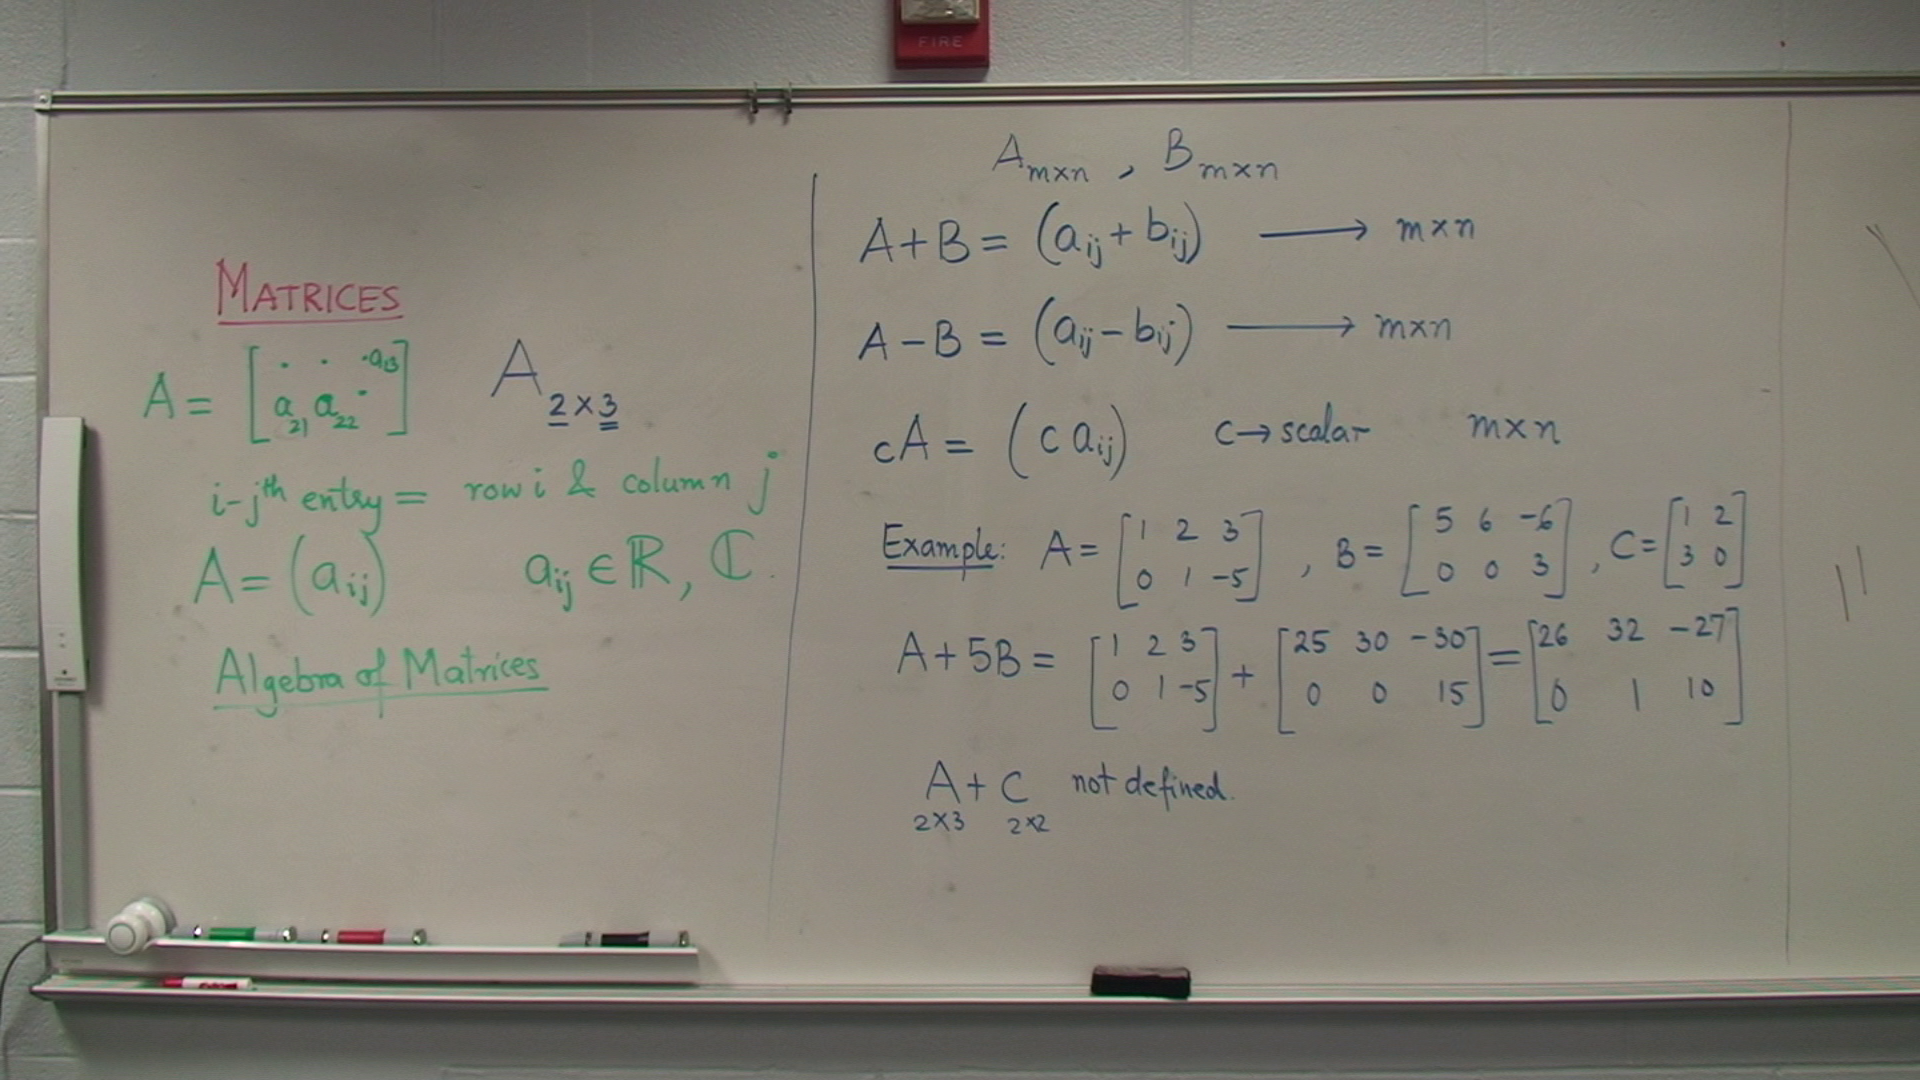 FIRE
MATRICES
A = [ . . . a₁₃ ; a₂₁ a₂₂ . ]
A₂ₓ₃
i-jth entry = row i & column j
A = (aij)
aij ∈ ℝ, ℂ.
Algebra of Matrices
Am×n , Bm×n
A+B = (aij + bij) ⟶ m×n
A−B = (aij − bij) ⟶ m×n
cA = (c aij) c→scalar m×n
Example: A = [1 2 3 ; 0 1 -5] , B = [5 6 -6 ; 0 0 3] , C = [1 2 ; 3 0]
A+5B = [1 2 3 ; 0 1 -5] + [25 30 -30 ; 0 0 15] = [26 32 -27 ; 0 1 10]
A + C not defined.
2×3 2×2